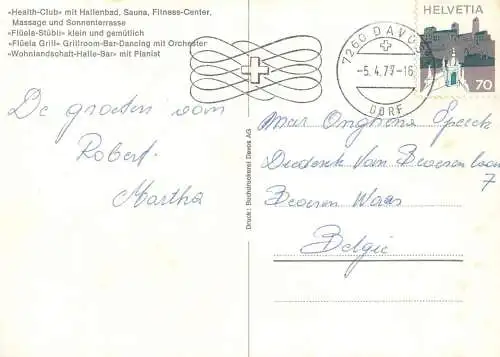 «Health-Club» mit Hallenbad, Sauna, Fitness-Center,
Massage und Sonnenterrasse
«Flüela-Stübli» klein und gemütlich
«Flüela Grill» Grillroom-Bar-Dancing mit Orchester
«Wohnlandschaft-Halle-Bar» mit Pianist
7260 DAVOS
-5.4.79-16
DORF
HELVETIA
70
De groeten van
Robert.
Martha
Druck: Buchdruckerei Davos AG
Speeck
Diederik Van Beverenlaan
7
Beveren Waas
België